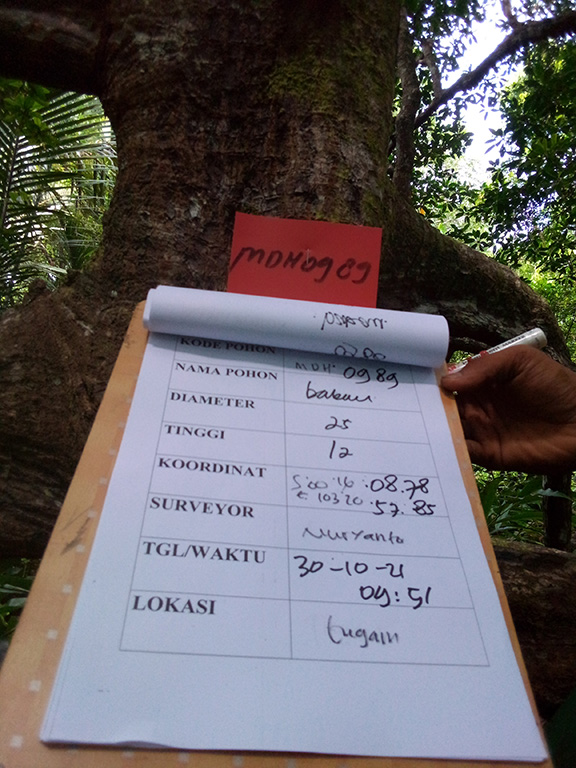 MDH0989
KODE POHON
NAMA POHON MDH 0989
DIAMETER bakau
TINGGI 25
KOORDINAT 12
S 00 16 . 08.78
E 103 20 . 57.85
SURVEYOR Nuryanto
TGL/WAKTU 30-10-21
09:51
LOKASI tugain